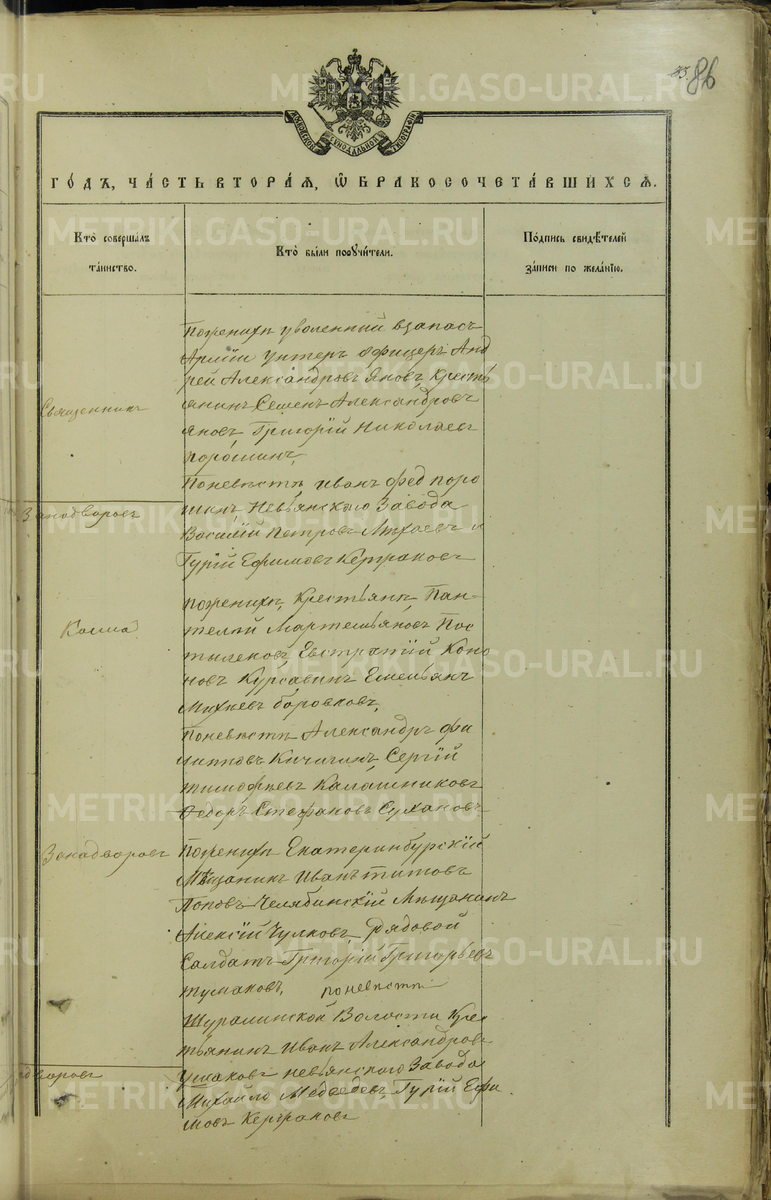 86
МОСКОВСКОЙ СѴНОДАЛЬНОЙ ТИПОГРАФІИ
ГО́ДЪ, ЧА́СТЬ ВТОРА́Я, Ѽ БРАКОСОЧЕТА́ВШИХСѦ.
Кто̀ соверша́лъ
та́инство.
Кто̀ бы́ли порꙋчи́тели.
По́дпись свидѣ́телей
за́писи по жела́нїю.
Поженихѣ уволенный взапасъ
Арміи унтеръ офицеръ Анд
рей Александровъ Яновъ, Кресть
янинъ Семенъ Александровъ
Яновъ, Григорій Николаевъ
Порошинъ,
Поневѣстѣ, Иванъ Фед Поро
шинъ, Невьянскаго Завода
Василій Петровъ и
Гурій Ефимовъ
Священникъ
Занадворовъ
Косма
Занадворовъ
дворовъ
Поженихѣ, Крестьянѣ Пан-
телей Мартемьяновъ Пос
тыляковъ, Евстратій Коно
новъ Курсавинъ Емельянъ
Михѣевъ Боровковъ,
Поневѣстѣ Александръ Фи
липповъ Кичигинъ, Сергій
Тимофѣевъ Калашниковъ
Федоръ Стефановъ Сухановъ
Поженихѣ Екатеринбурскій
Мѣщанинъ Иванъ Титовъ
Поповъ Челябинскій Мѣщанинъ
Алексій Чулковъ, Рядовой
Солдатъ Григорій Григорьевъ
Тумаковъ, поневѣстѣ
Шуралинской Волости Крес
тьянинъ Иванъ Александровъ
Ушаковъ Невьянскаго Завода
Михайло Медведевъ, Гурій Ефи
мовъ
METRIKI.GASO-URAL.RU